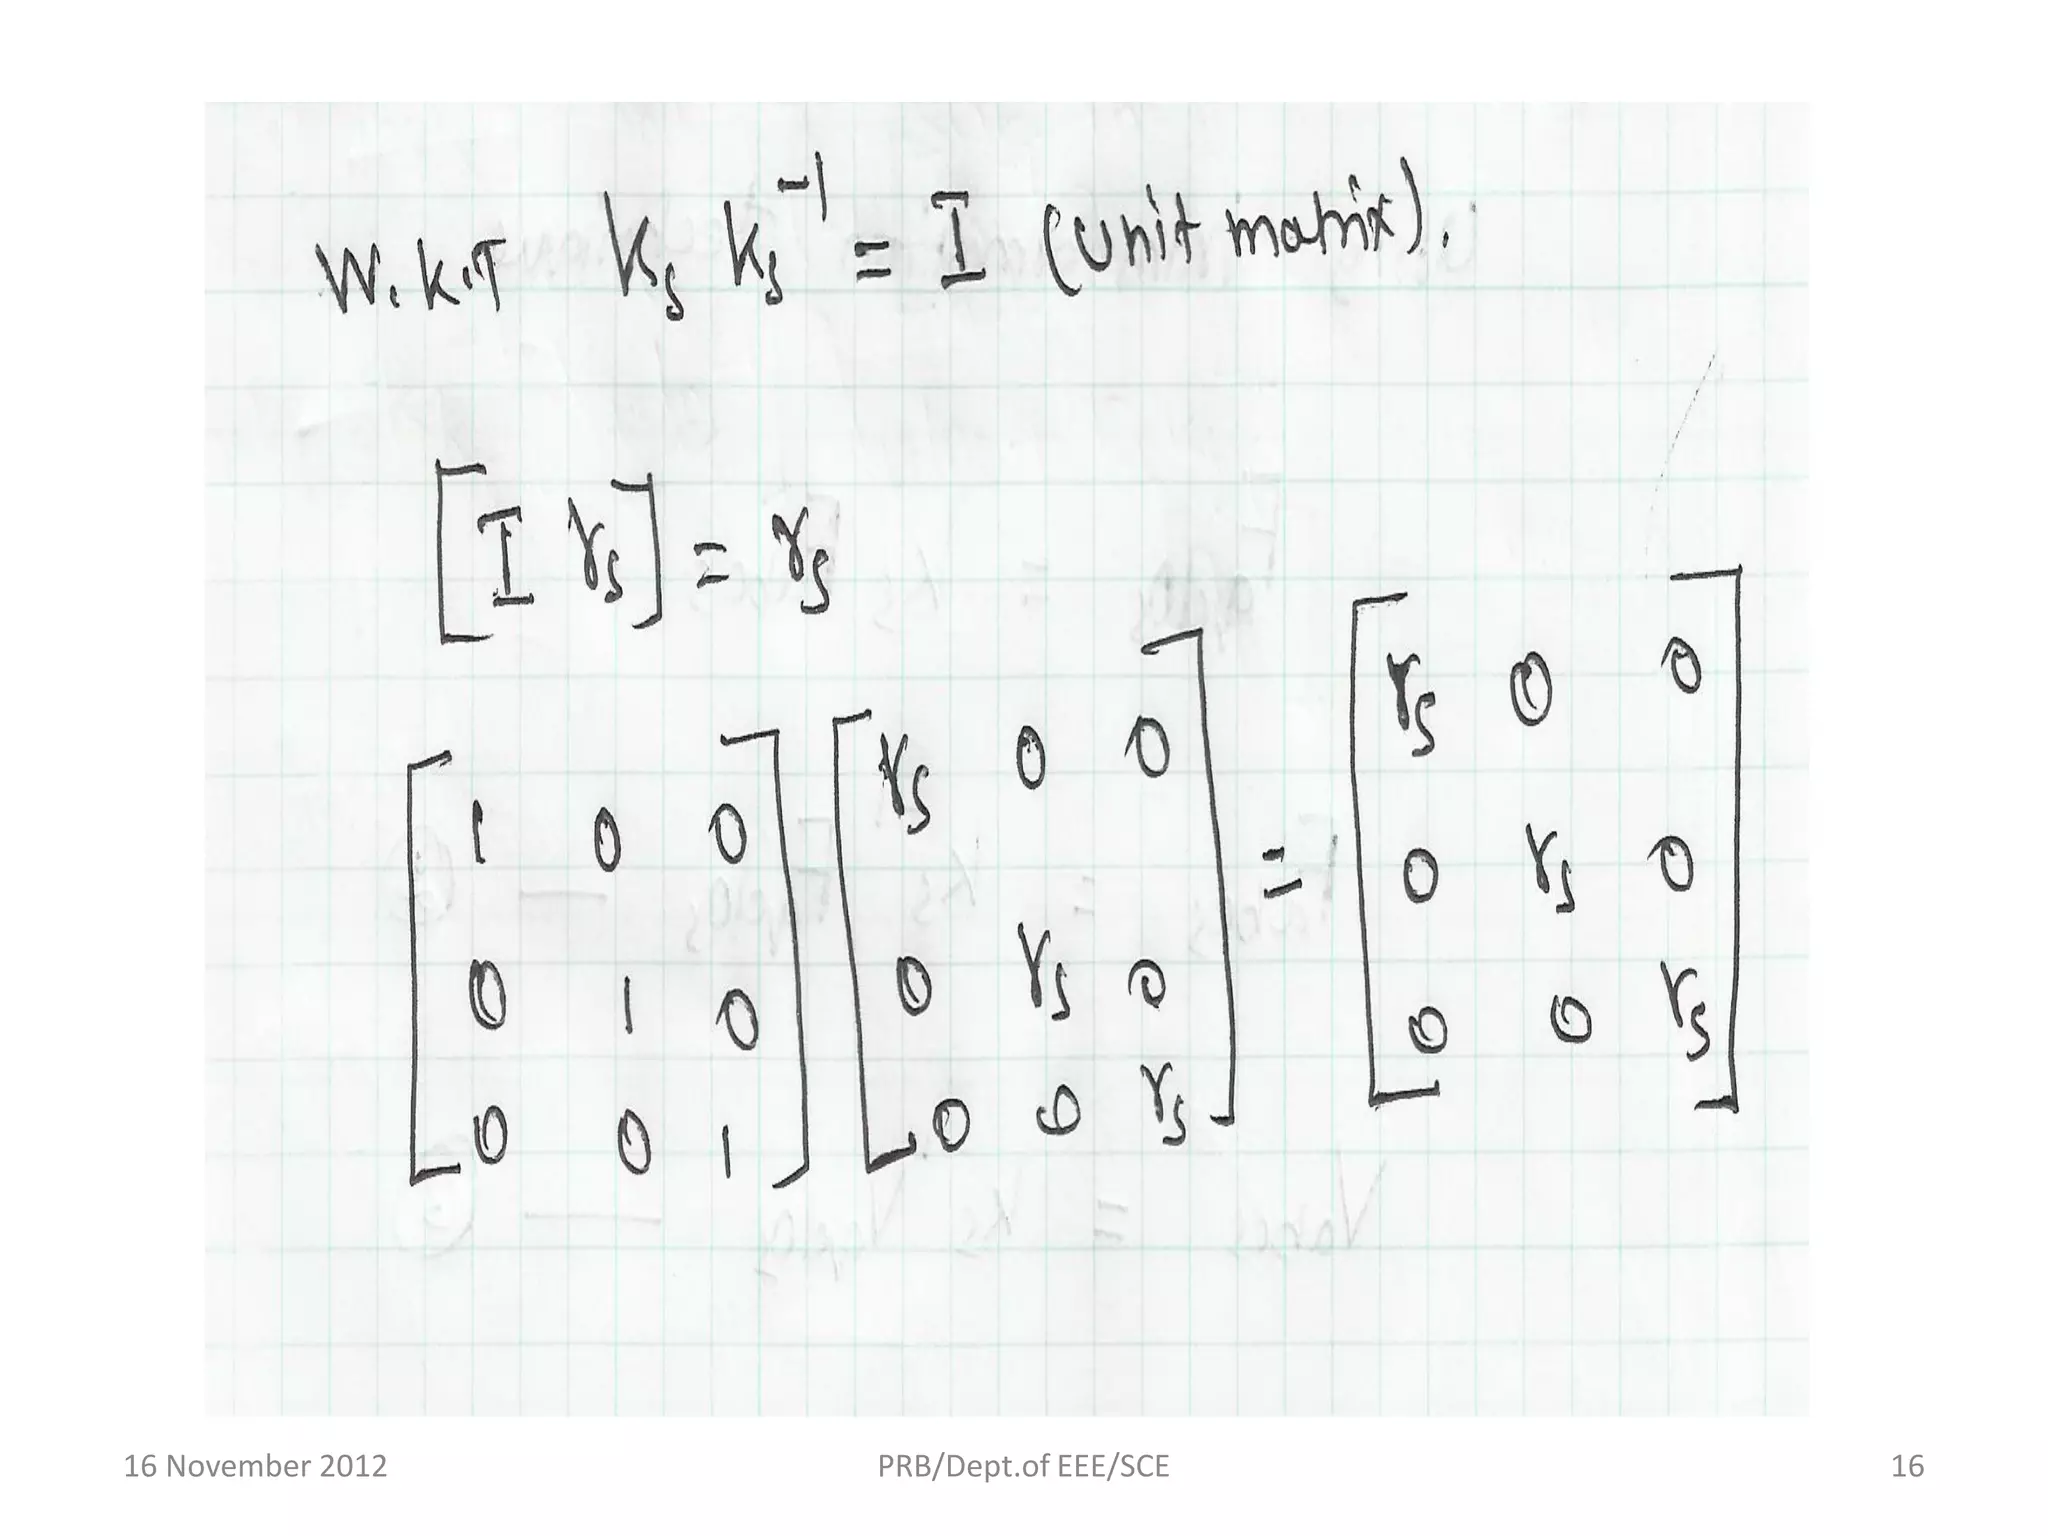 W.K.T Ks Ks⁻¹ = I (Unit matrix).
[I rs] = rs
[1 0 0; 0 1 0; 0 0 1] [rs 0 0; 0 rs 0; 0 0 rs] = [rs 0 0; 0 rs 0; 0 0 rs]
16 November 2012 PRB/Dept.of EEE/SCE 16